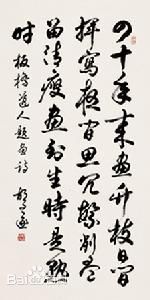 四十年来画竹枝日间
挥写夜间思冗繁削尽
留清瘦画到生时是熟
时 板桥道人题画诗
Bai百科